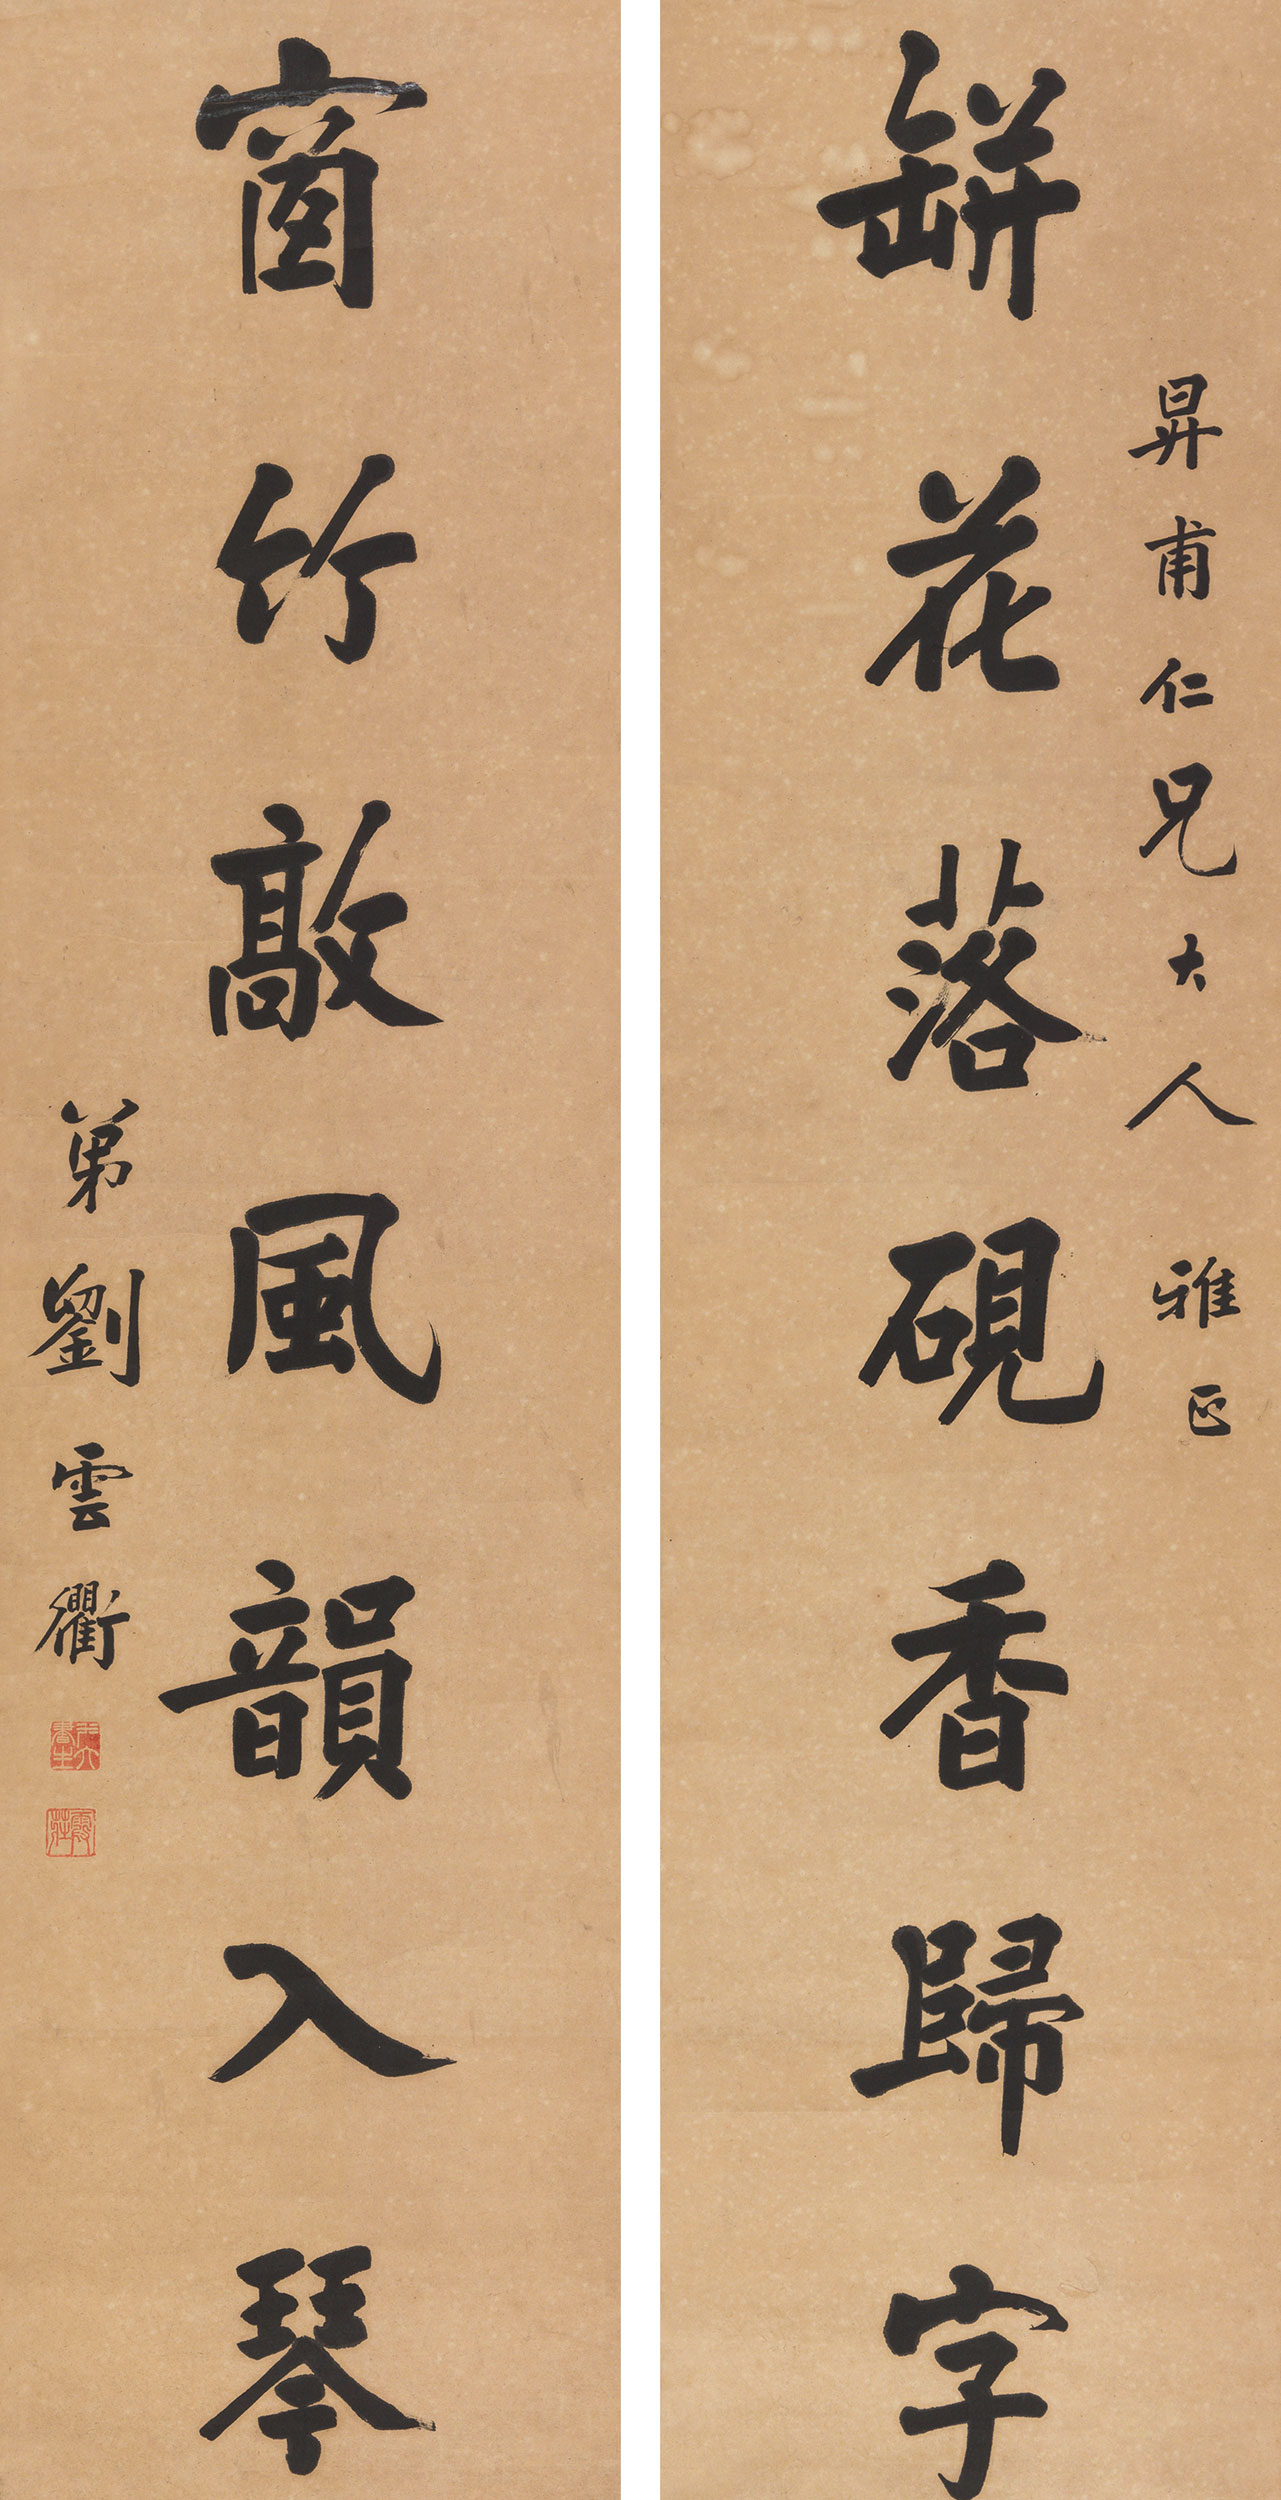 昇甫仁兄大人雅正
缾花落硯香歸字
窗竹敲風韻入琴
弟劉雲衢